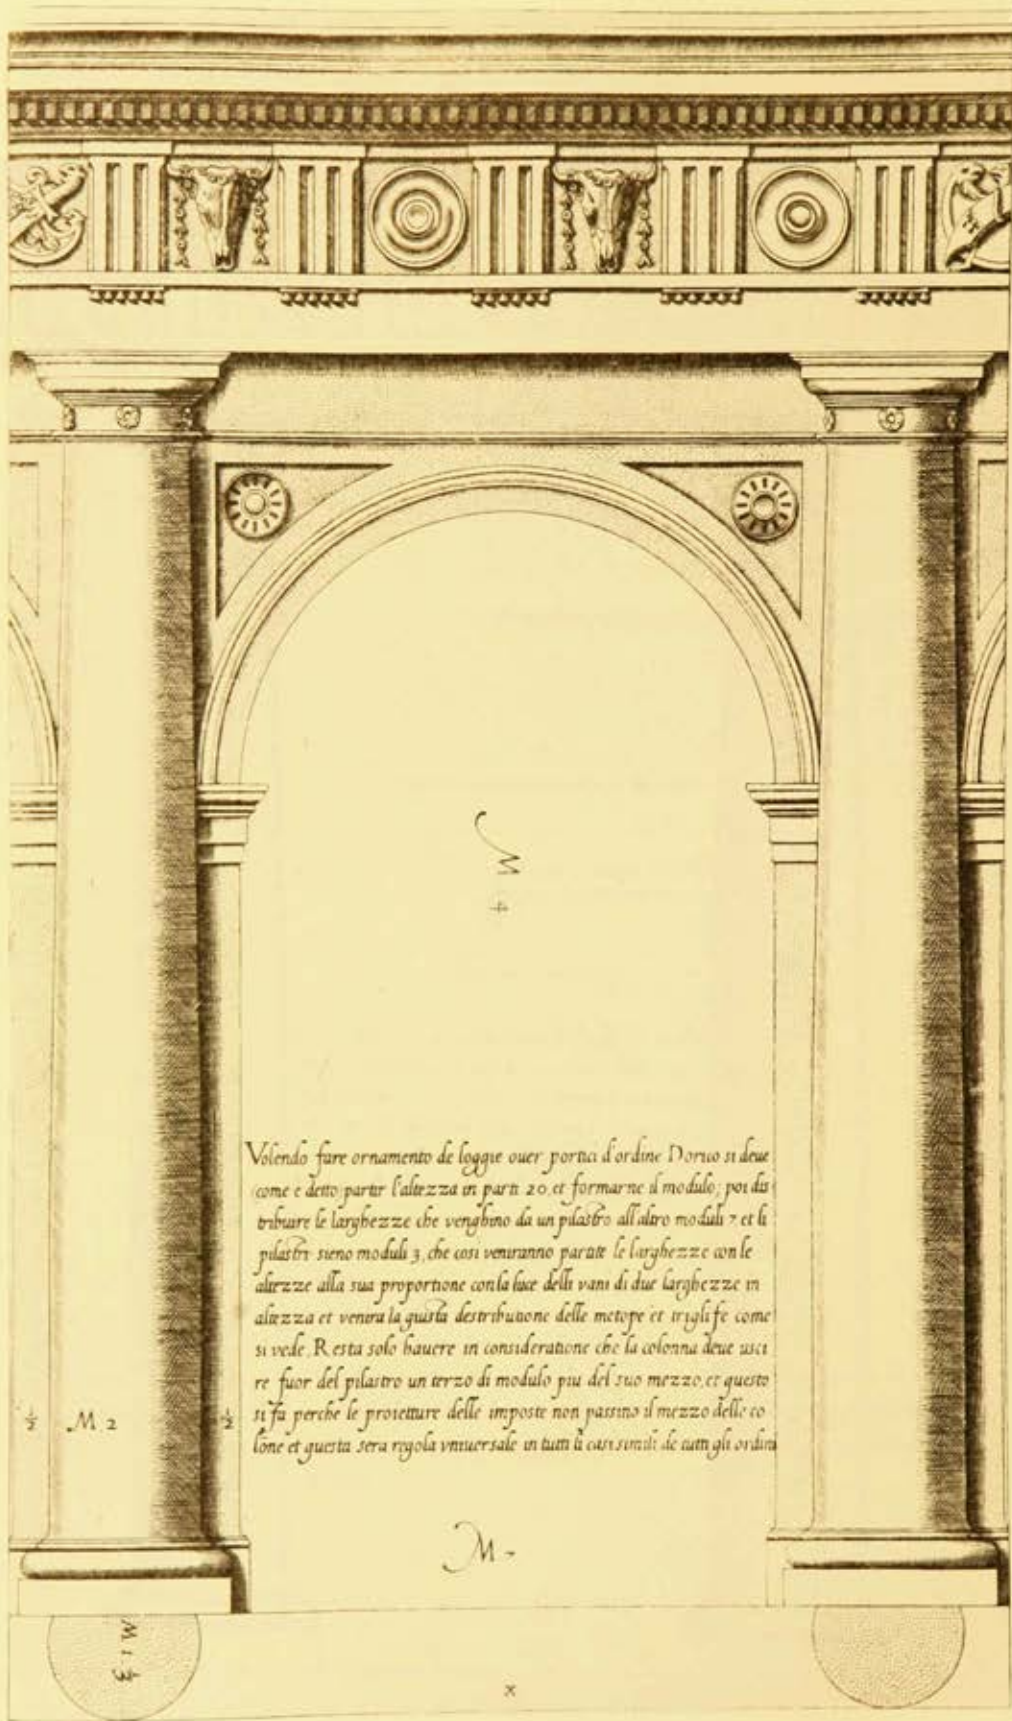 M
Volendo fare ornamento de loggie ouer portici d'ordine Dorico si deue
come e detto partir l'altezza in parti 20, et formarne il modulo; poi dis
tribuire le larghezze che venghino da un pilastro all'altro moduli 7 et li
pilastri sieno moduli 3, che cosi veniranno partite le larghezze con le
altezze alla sua proportione con la luce delli vani di due larghezze in
altezza et venira la giusta destributione delle metope et triglife come
si vede. Resta solo hauere in consideratione che la colonna deue usci
re fuor del pilastro un terzo di modulo piu del suo mezzo, et questo
si fa perche le proietture delle imposte non passino il mezzo delle co
lone et questa sera regola vniuersale in tutti li casi simili de tutti gli ordini
½ M 2 ½
M 7
M 1 ⅓
X